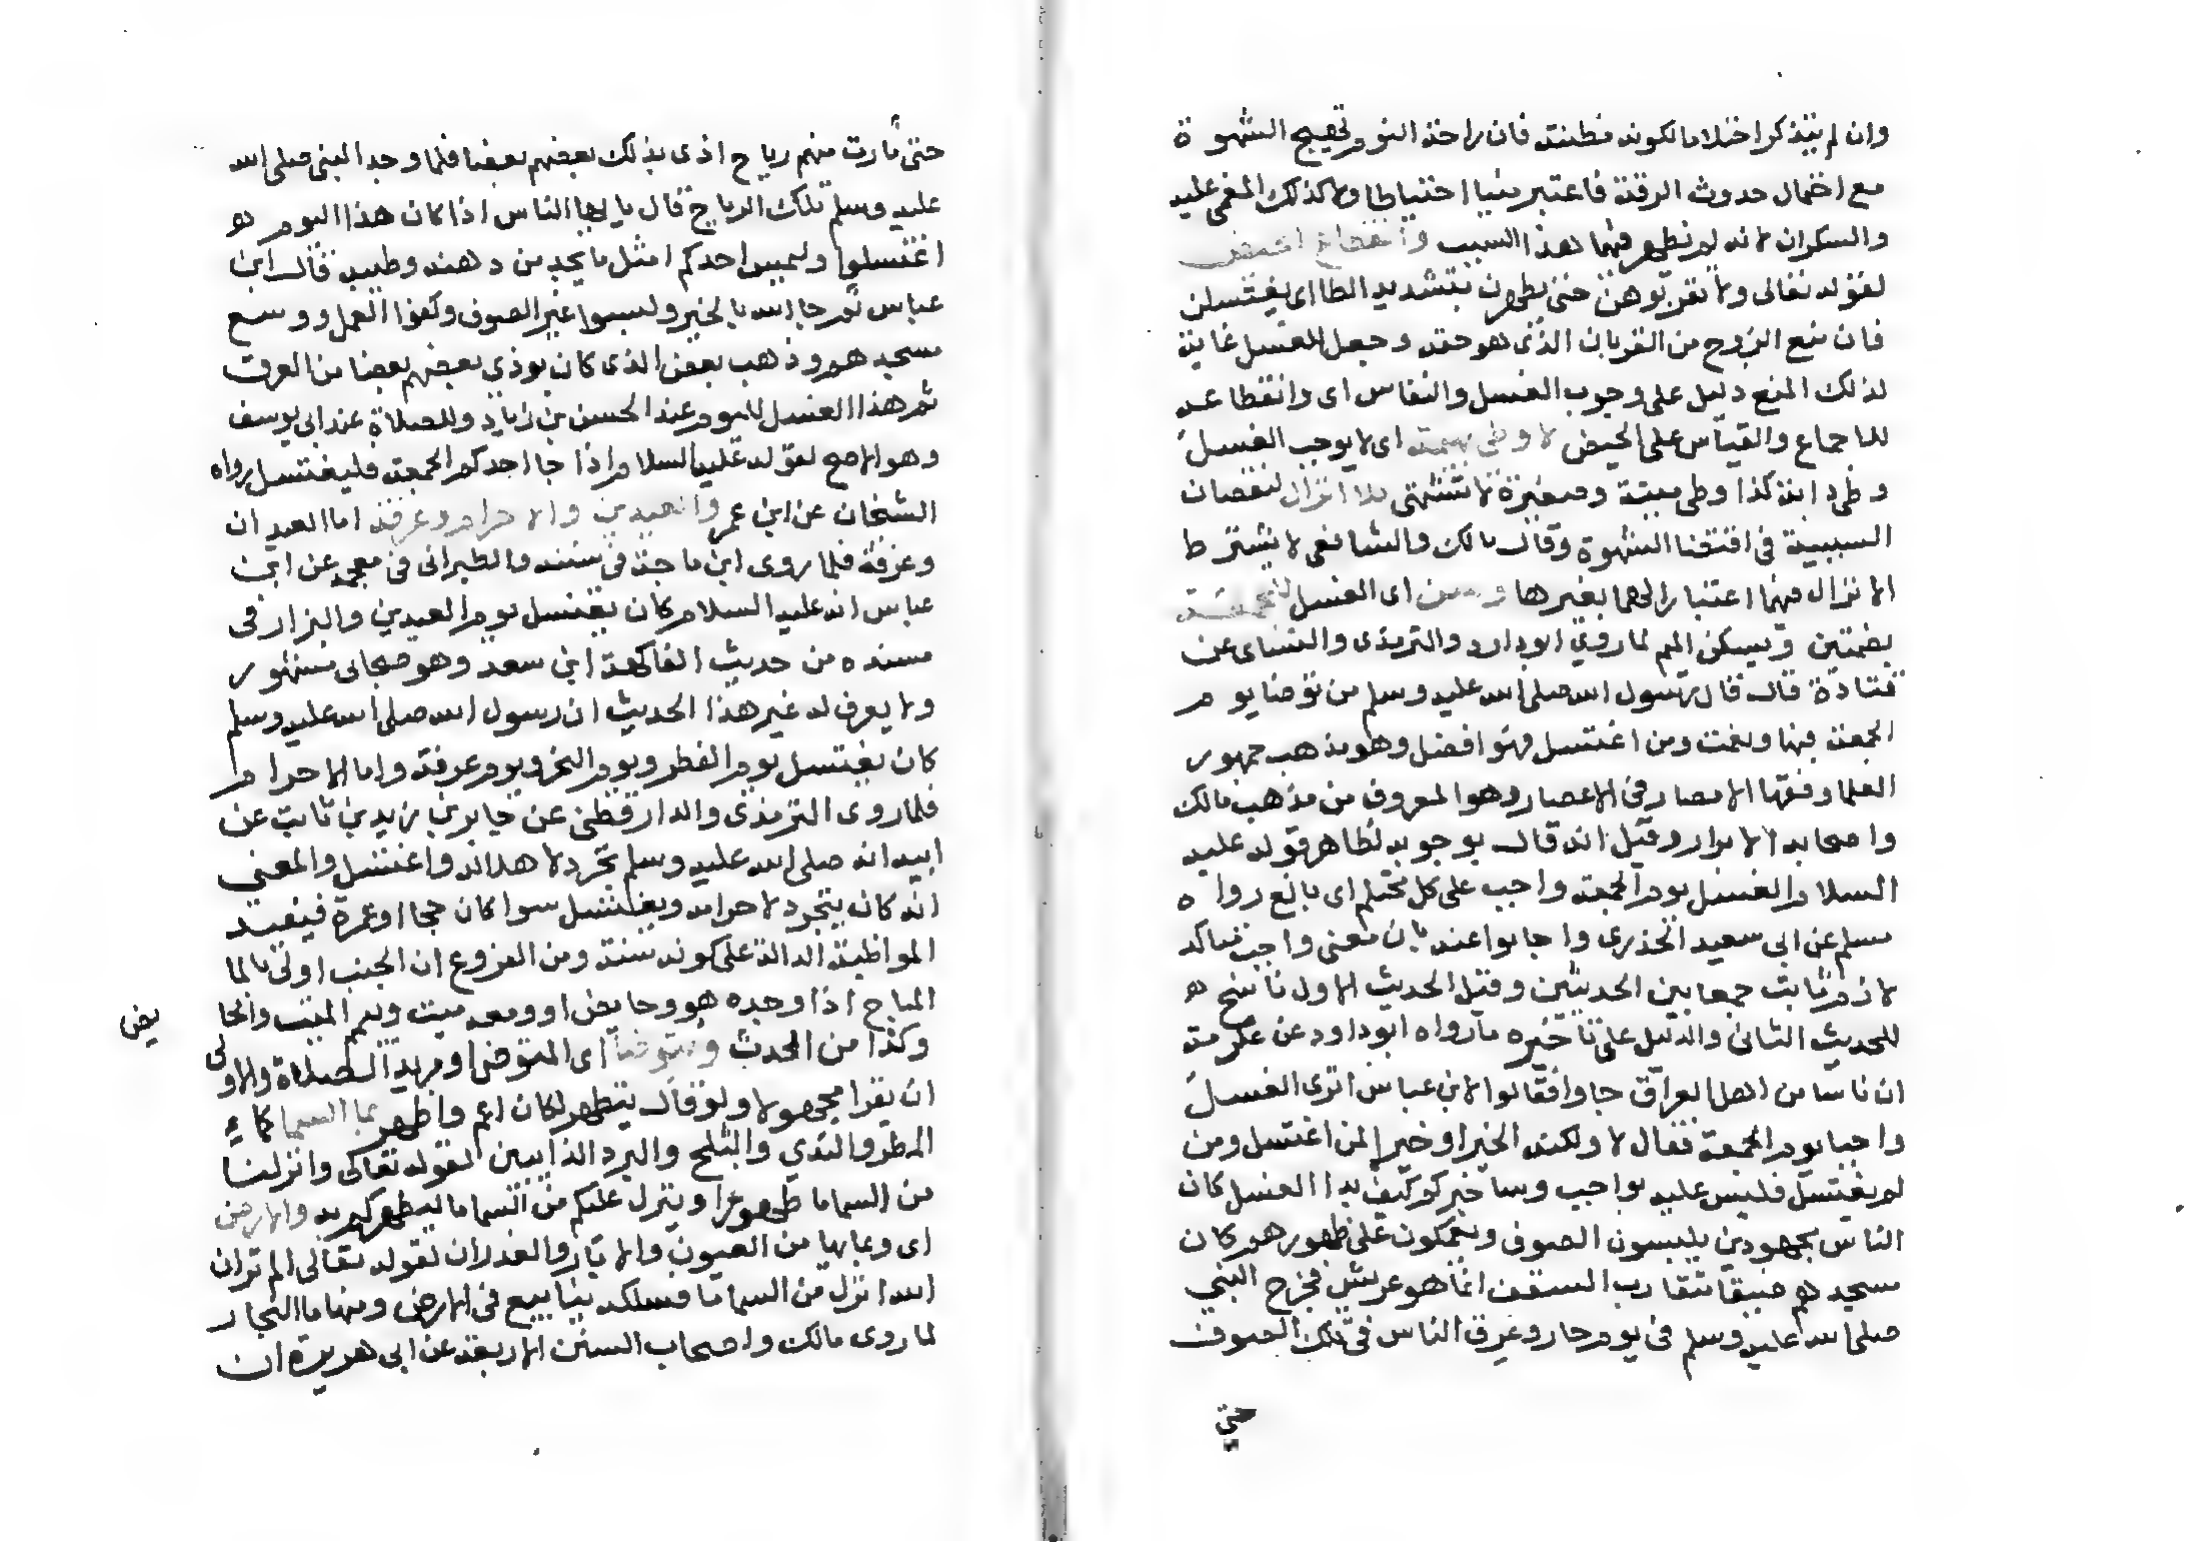 وان لم يتذكر احتلاما لكونه مظنته فان راحة النوم تهيج الشهوة
مع احتمال حدوث الرقة فاعتبر منيا احتياطا ولا كذلك المغمى عليه
والسكران لانه لم يظهر فيهما هذا السبب وانقطاع الحيض
لقوله تعالى ولا تقربوهن حتى يطهرن بتشديد الطا اى يغتسلن
فان منع الزوج من القربان الذى هو حقه وجعل الغسل غاية
لذلك المنع دليل على وجوب الغسل والنفاس اى وانقطاعه
للاجماع والقياس على الحيض لا وطى بهيمة اى لا يوجب الغسل
وطى دابة كذا وطى ميتة وصغيرة لا تشتهى بلا انزال لنقصان
السببية فى اقتضا الشهوة وقال مالك والشافعى لا يشترط
الانزال فيهما اعتبارا لهما بغيرها وسن اى الغسل للجمعة
بضمتين ويسكن الميم لما روى ابو داود والترمذى والنساى عن
قتادة قال قال رسول الله صلى الله عليه وسلم من توضا يوم
الجمعة فبها ونعمت ومن اغتسل فهو افضل وهو مذهب جمهور
العلما وفقها الامصار فى الاعصار وهو المعروف من مذهب مالك
واصحابه الابرار وقيل انه قال بوجوبه لظاهر قوله عليه
السلام الغسل يوم الجمعة واجب على كل محتلم اى بالغ رواه
مسلم عن ابى سعيد الخدرى واجابوا عنه بان معنى واجب متاكد
لازم ثابت جمعا بين الحديثين وقيل الحديث الاول ناسخ
للحديث الثانى والدليل على تاخيره ما رواه ابو داود عن عكرمة
ان ناسا من اهل العراق جاوا فقالوا لابن عباس اترى الغسل
واجبا يوم الجمعة فقال لا ولكنه الخير او خير لمن اغتسل ومن
لم يغتسل فليس عليه بواجب وساخبركم كيف بدا الغسل كان
الناس مجهودين يلبسون الصوف ويعملون على ظهورهم وكان
مسجدهم ضيقا متقارب السقف انما هو عريش فخرج النبى
صلى الله عليه وسلم فى يوم حار وعرق الناس فى تلك الصوف
حتى
حتى ثارت منهم رياح اذى بذلك بعضهم بعضا فلما وجد النبى صلى الله
عليه وسلم تلك الرياح قال يايها الناس اذا كان هذا اليوم
اغتسلوا وليمس احدكم امثل ما يجد من دهنه وطيبه قال ابن
عباس ثم جا الله بالخير ولبسوا غير الصوف وكفوا العمل ووسع
مسجدهم وذهب بعض الذى كان يوذى بعضهم بعضا من العرق
ثم هذا الغسل لليوم عند الحسن بن زياد وللصلاة عند ابى يوسف
وهو الاصح لقوله عليه السلام اذا جا احدكم الجمعة فليغتسل رواه
الشيخان عن ابن عمر والعيدين والاحرام وعرفة اما العيدان
وعرفة فلما روى ابن ماجة فى سننه والطبرانى فى معجمه عن ابن
عباس انه عليه السلام كان يغتسل يوم العيدين والبزار فى
مسنده من حديث الفاكهة ابن سعد وهو صحابى مشهور
ولا يعرف له غير هذا الحديث ان رسول الله صلى الله عليه وسلم
كان يغتسل يوم الفطر ويوم النحر ويوم عرفة واما الاحرام
فلما روى الترمذى والدارقطنى عن خابر بن زيد بن ثابت عن
ابيه انه صلى الله عليه وسلم تجرد لاهلاله واغتسل والمعنى
انه كان يتجرد لاحرامه ويغتسل سوا كان حجا او عمرة فيفيد
المواظبة الدالة على كونه سنة ومن الفروع ان الجنب اولى بالما
المباح اذا وجده هو وحايض او ومعه ميت ويمم الميت والحا
يض
وكذا من الحدث ويتوضأ اى المتوضى او مريد الصلاة والاولى
ان يقرا مجهولا ولو قال يتطهر لكان اعم واظهر بما السما كماء
المطر والندى والثلج والبرد الذايبين لقوله تعالى وانزلنا
من السما ما طهورا وينزل عليكم من السما ما ليطهركم به والارض
اى وبمايها من العيون والابار والغدران لقوله تعالى الم تر ان
الله انزل من السما ما فسلكه ينابيع فى الارض ومنها ما البحار
لما روى مالك واصحاب السنن الاربعة عن ابى هريرة ان